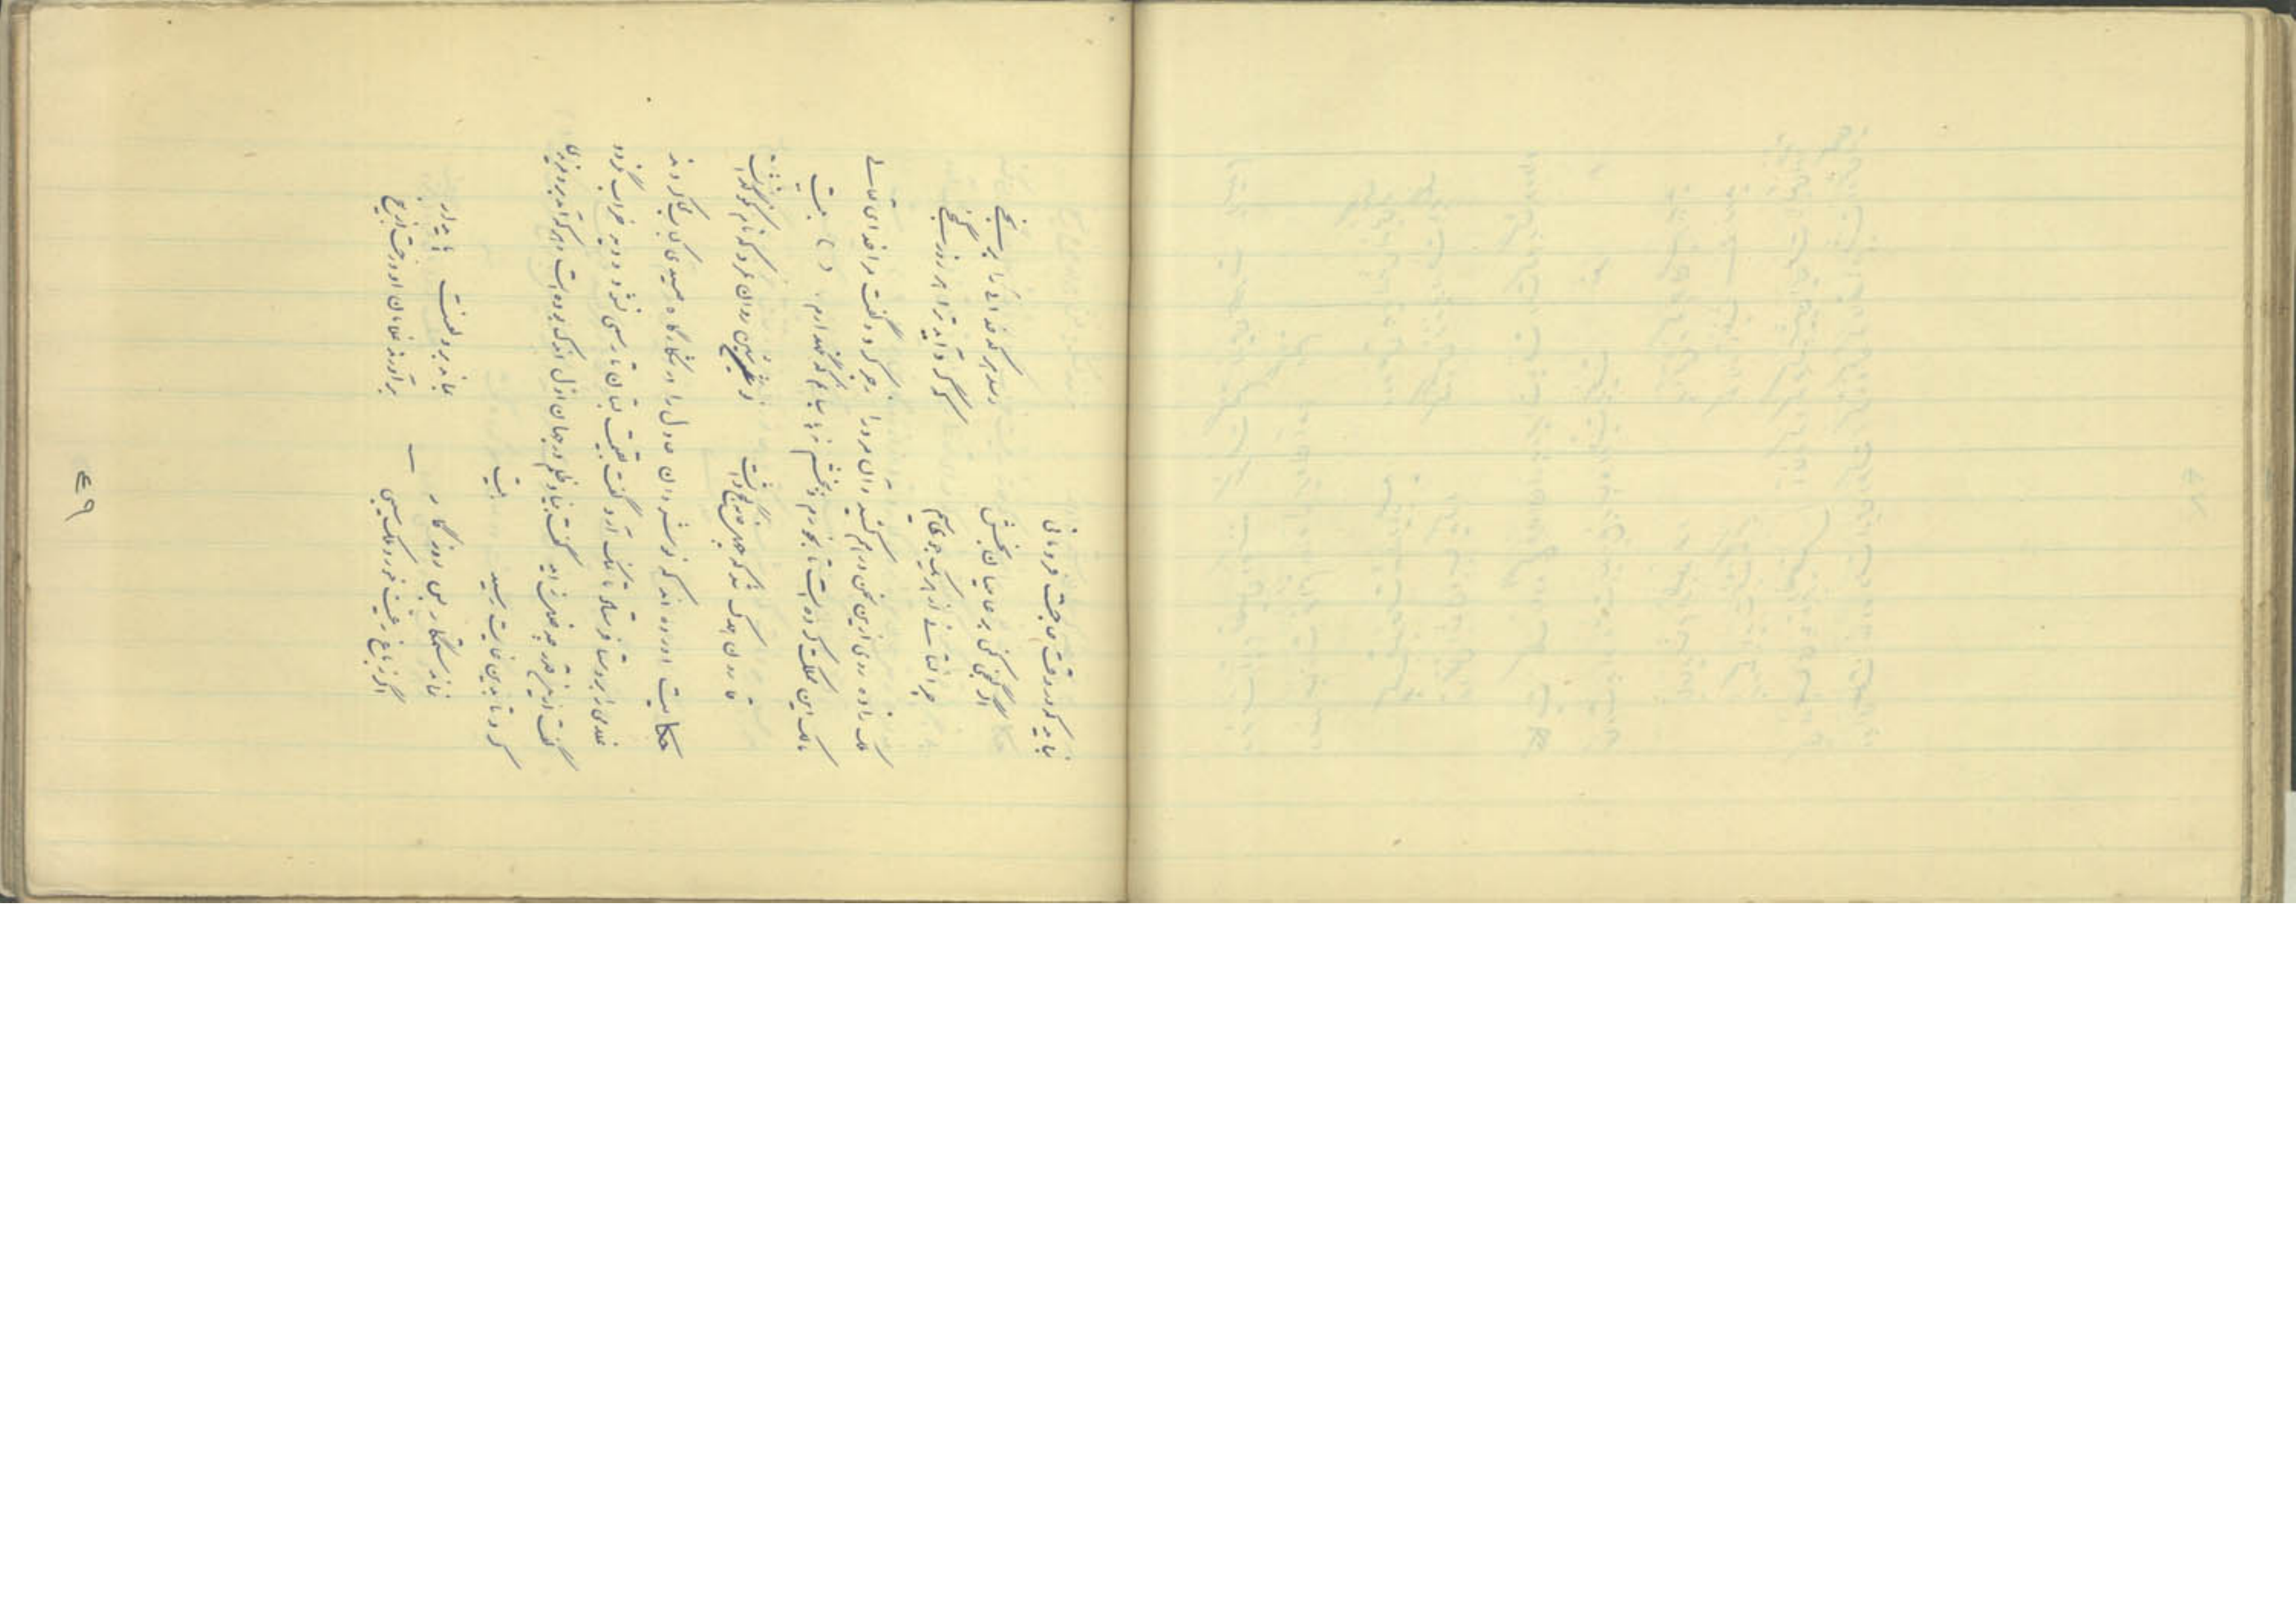 نباید که در وقت حاجت فرومانی
اگر گنجی کنی بر عامیان بخش رسد هر کدخدائی را برنجی
چرا نستانی از هر یک جوی سیم که گرد آید ترا هر روز گنجی
ملک زاده روی ازین سخن درهم کشید و آن مرد را زجر کرد و گفت مرا خدای تعالی
مالک این مملکت کرده است تا بخورم و ببخشم نه پاسبانم که نگهدارم (( بیت
قارون هلاک شد که چهل خانه گنج داشت نوشین روان نمرد که نام نکو گذاشت
حکایت اورده اند که نوشروان عادل را در شکارگاه صیدی کباب میکردند
غلامی را بروستا فرستاد تا نمک آرد گفت بقیمت بستان تا رسمی نشود و دیه خراب نگردد
گفت ازینقدر چه خلل زاید گفت بنیاد ظلم در جهان اول اندک بوده است و هر که آمد برو مزیدی
کرد تا بدین غایت رسید بیت
نماند ستمکار بد روزگار — بماند برو لعنت پایدار
اگر ز باغ رعیت خورد ملک سیبی برآورند غلامان او درخت از بیخ
۴۹